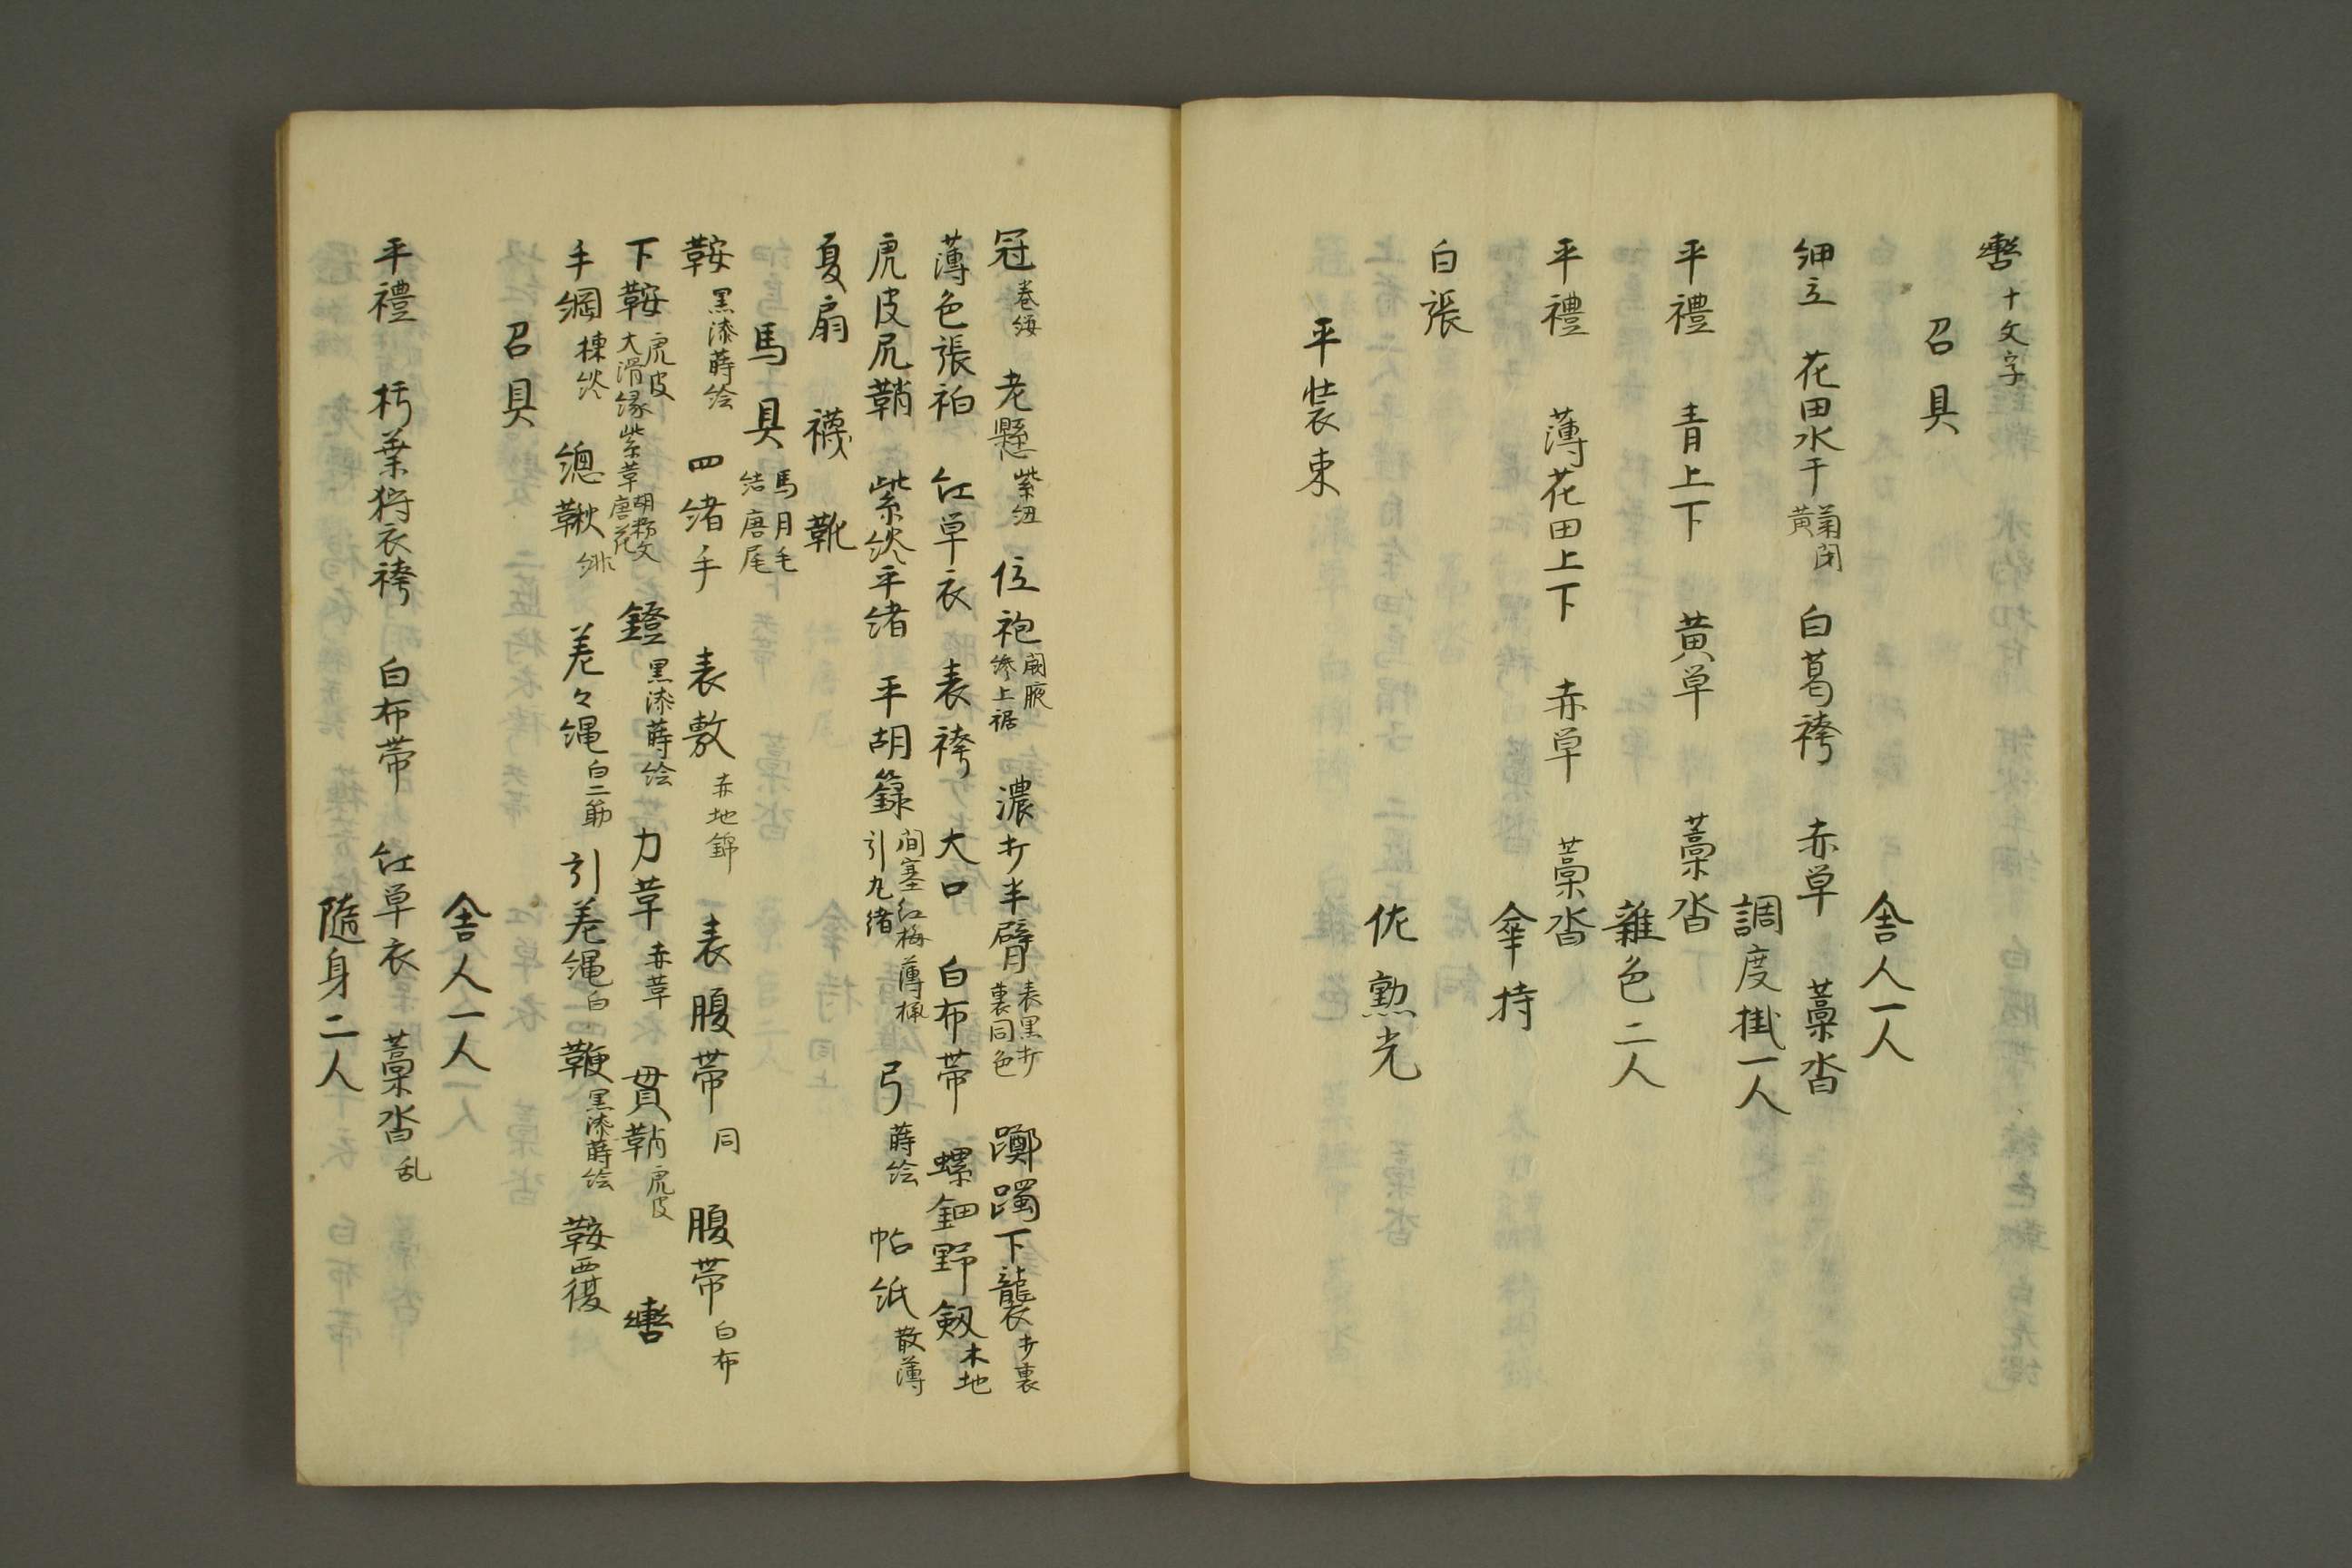 轡十文字
召具
舎人一人
細立 花田水干菊閉黄 白葛袴 赤単 藁沓
調度掛一人
平禮 青上下 黄単 藁沓
雑色二人
平禮 薄花田上下 赤単 藁沓
傘持
白張
佐勲光
平装束
冠巻纓 老懸紫紐 位袍闕腋縫上裾 濃打半臂表黒打裏同色 躑躅下襲打裏
薄色張袙 紅単衣 表袴 大口 白布帯 螺鈿野剱木地
虎皮尻鞘 紫淡平緒 平胡籙間塞紅梅薄様引丸緒 弓蒔絵 帖紙散薄
夏扇 襪 靴
馬具馬月毛結唐尾
鞍黒漆蒔絵 四緒手 表敷赤地錦 表腹帯同 腹帯白布
下鞍虎皮大滑縁紫革胡粉文唐花 鐙黒漆蒔絵 力革赤革 貫鞘虎皮 轡
手綱楝淡 總鞦緋 差々縄白二筋 引差縄白 鞭黒漆蒔絵 鞍覆
召具
舎人一人
平禮 朽葉狩衣袴 白布帯 紅単衣 藁沓乱
隨身二人